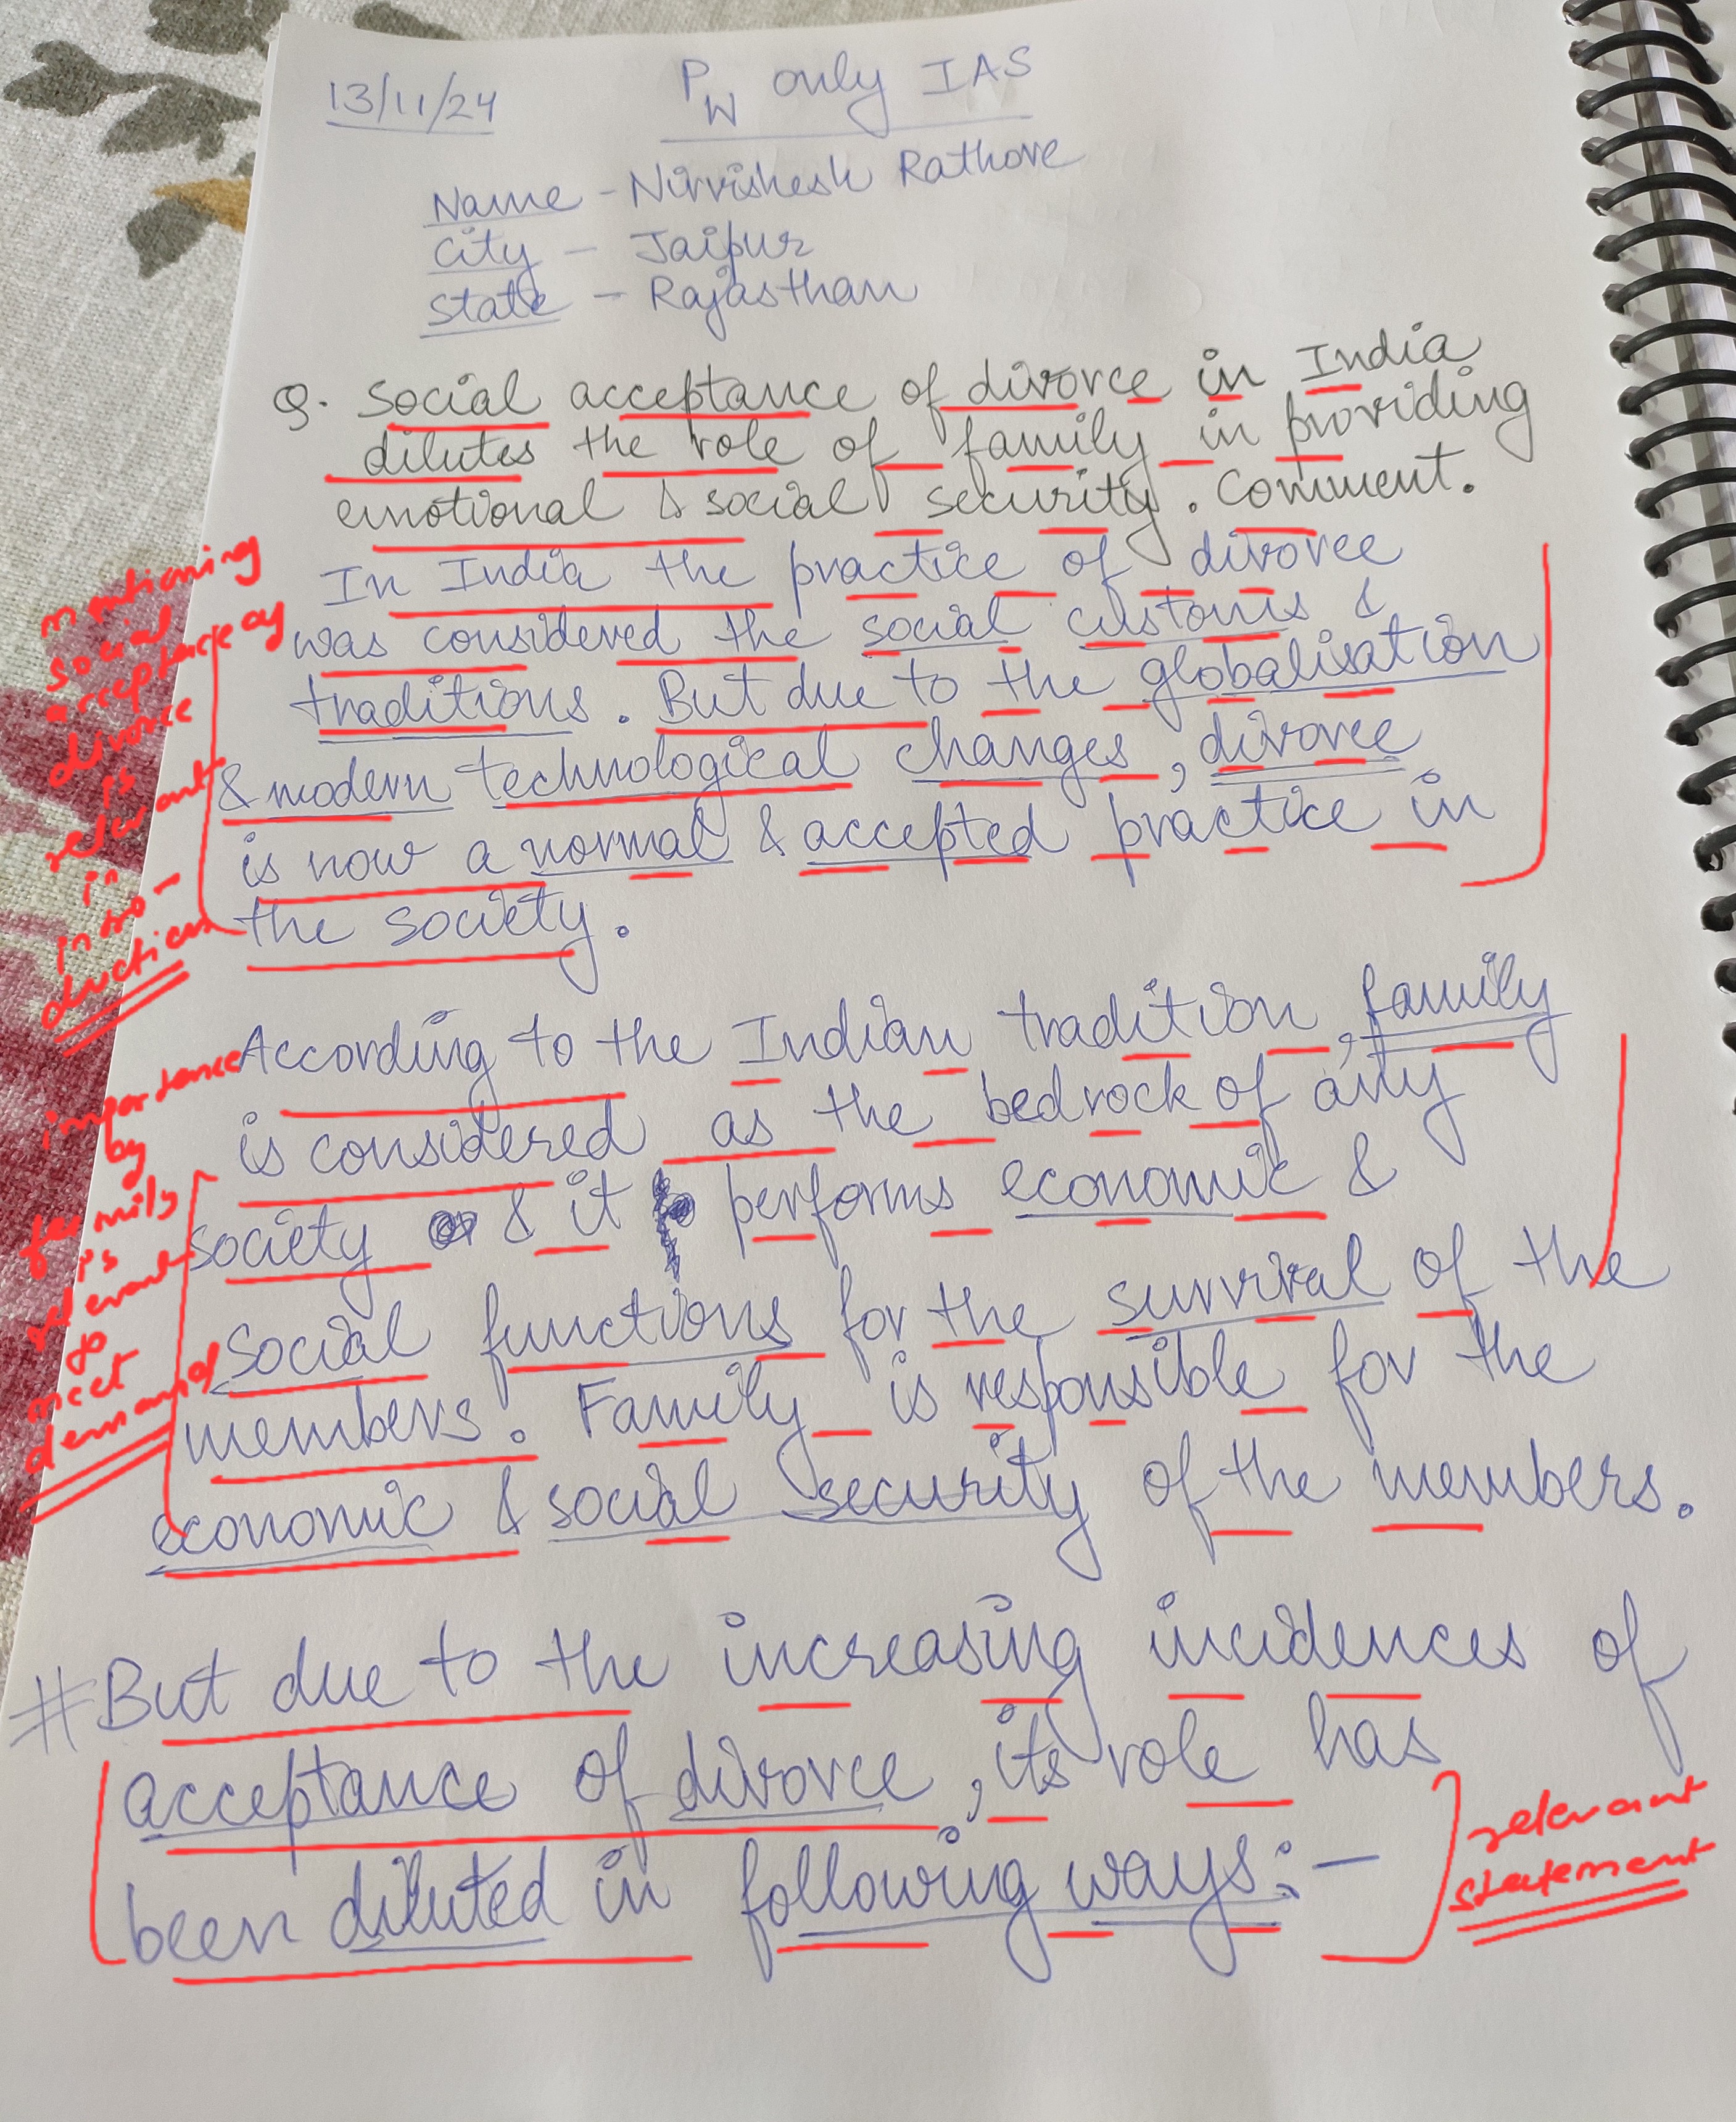 13/11/24
PW only IAS
Name - Nirvishesh Rathore
City - Jaipur
State - Rajasthan
Q. Social acceptance of divorce in India
dilutes the role of family in providing
emotional & social security. Comment.
In India the practice of divorce
was considered the social customs &
traditions. But due to the globalisation
& modern technological changes, divorce
is now a normal & accepted practice in
the society.
mentioning
social
acceptance of
divorce
is
relevant
in
intro-
duction
According to the Indian tradition, family
is considered as the bedrock of any
society & it performs economic &
social functions for the survival of the
members. Family is responsible for the
economic & social security of the members.
importance
by
family
is
relevant
to
meet
demand
# But due to the increasing incidences of
acceptance of divorce, its role has
been diluted in following ways:-
relevant
statement